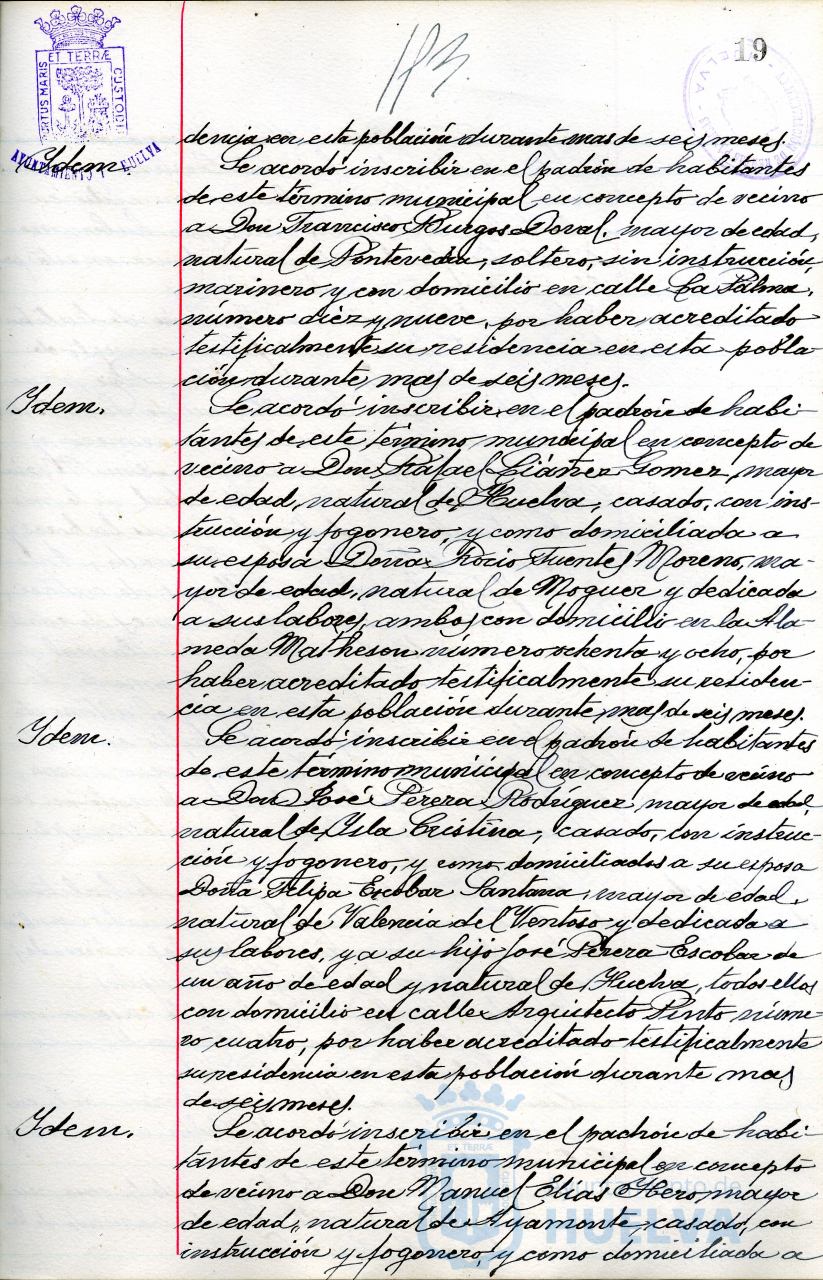 113.
19
PORTUS MARIS ET TERRÆ CUSTODIA
AYUNTAMIENTO DE HUELVA
dencia en esta población durante mas de seis meses.
Idem.
Se acordó inscribir en el padrón de habitantes
de este término municipal en concepto de vecino
a Don Francisco Burgos Doval, mayor de edad,
natural de Pontevedra, soltero, sin instrucción,
marinero y con domicilio en calle La Palma,
número diez y nueve, por haber acreditado
testificalmente su residencia en esta pobla
ción durante mas de seis meses.
Idem.
Se acordó inscribir en el padrón de habi-
tantes de este término municipal en concepto de
vecino a Don Rafael Liáñez Gomez, mayor
de edad, natural de Huelva, casado, con ins-
trucción y fogonero, y como domiciliada a
su esposa Doña Rocio Fuentes Moreno, ma-
yor de edad, natural de Moguer y dedicada
a sus labores, ambos con domicilio en la Ala-
meda Matheson número ochenta y ocho, por
haber acreditado testificalmente su residen-
cia en esta población durante mas de seis meses.
Idem.
Se acordó inscribir en el padrón de habitantes
de este término municipal en concepto de vecino
a Don José Perera Rodríguez, mayor de edad,
natural de Isla Cristina, casado, con instruc-
ción y fogonero, y como domiciliados a su esposa
Doña Felipa Escobar Santana, mayor de edad,
natural de Valencia del Ventoso y dedicada a
sus labores, y a su hijo José Perera Escobar de
un año de edad y natural de Huelva, todos ellos
con domicilio en calle Arquitecto Pinto núme-
ro cuatro, por haber acreditado testificalmente
su residencia en esta población durante mas
de seis meses.
Idem.
Se acordó inscribir en el padrón de habi-
tantes de este término municipal en concepto
de vecino a Don Manuel Elías Hero, mayor
de edad, natural de Ayamonte, casado, con
instrucción y fogonero, y como domiciliada a
Ayuntamiento de
HUELVA